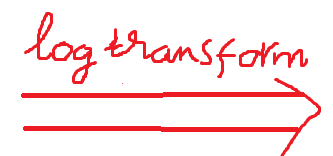 log transform